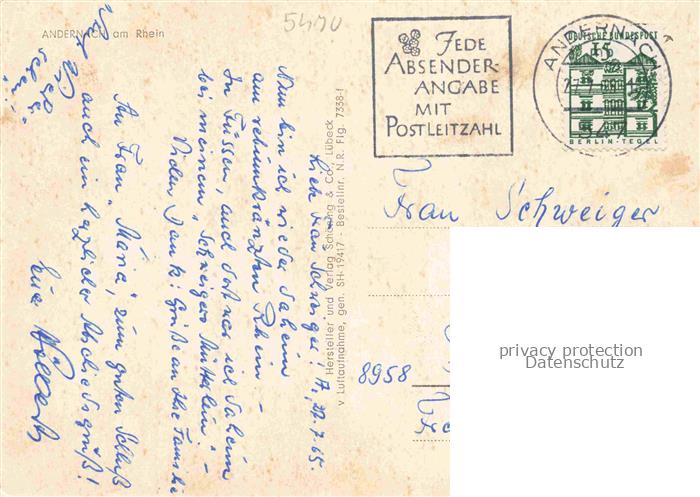 ANDERNACH am Rhein
5470
JEDE
ABSENDER-
ANGABE
MIT
POSTLEITZAHL
ANDERNACH
DEUTSCHE BUNDESPOST
15
BERLIN-TEGEL
Hersteller und Verlag Schöning & Co., Lübeck
Luftaufnahme, gen. SH 19417 - Bestellnr. N.R. Flg. 7338-f
Liebe Frau Schweiger! A, 22.7.65.
Nun bin ich wieder daheim
am rebumkränzten Rhein –
In Füssen, auch dort war ich daheim
bei meinem „Schweigers Mütterlein“! –
Vielen Dank! Grüße an Ihre Familie
An Frau „Maria“, zum guten Schluß
auch ein herzlicher Abschiedsgruß!
Frau Schweiger
8958
privacy protection
Datenschutz